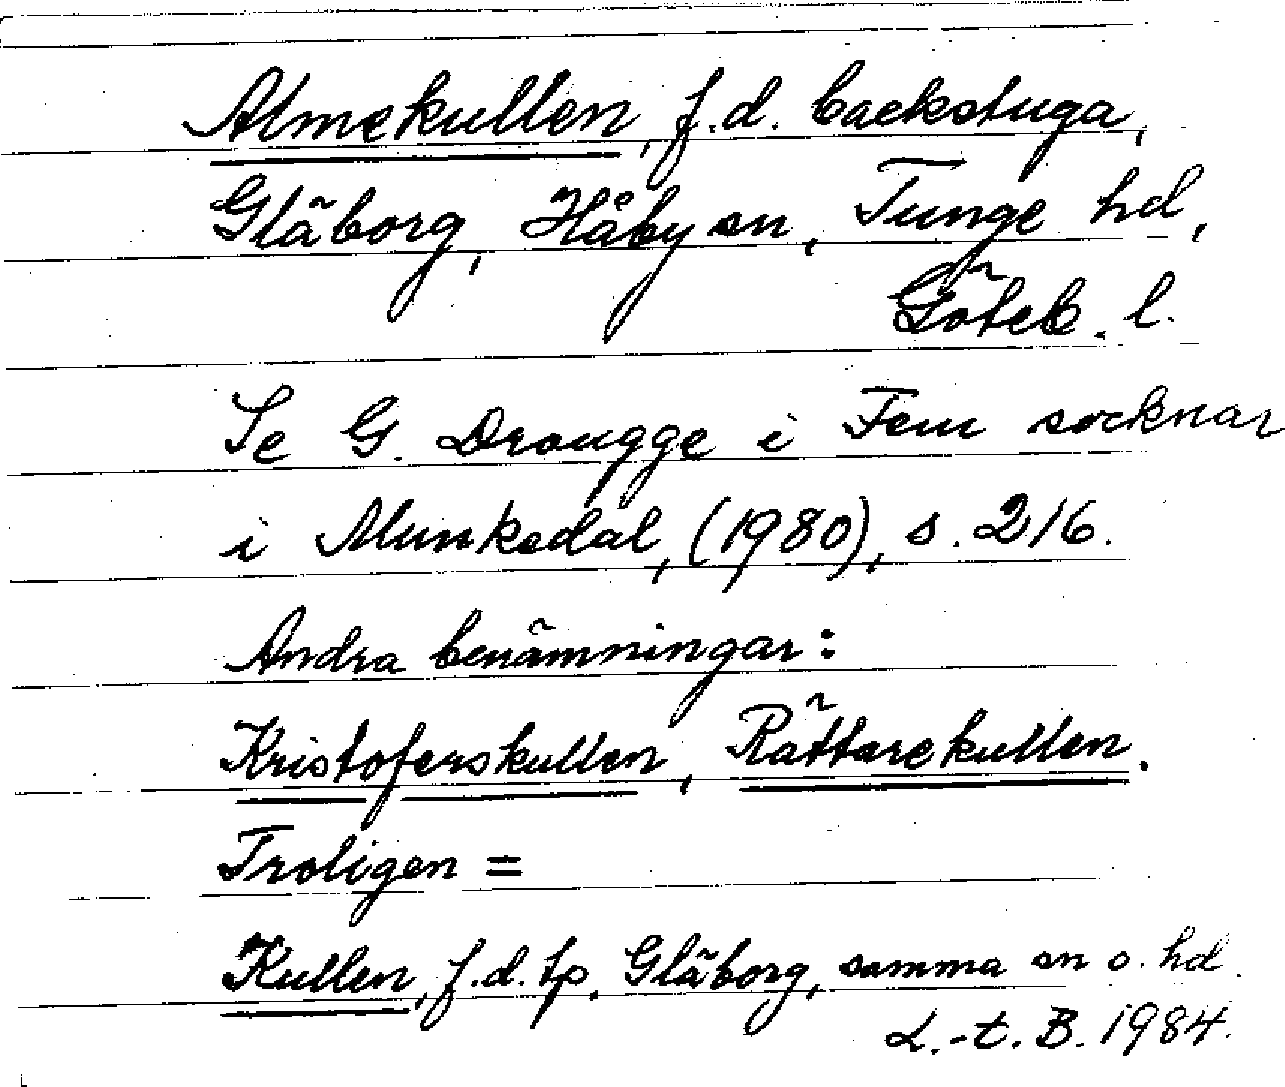 Almekullen, f.d. backstuga,
Gläborg, Håby sn, Tunge hd,
Göteb. l.
Se G. Drougge i Fem socknar
i Munkedal, (1980), s. 216.
Andra benämningar:
Kristoferskullen, Rättarekullen.
Troligen =
Kullen, f.d. tp, Gläborg, samma sn o. hd.
L.-t. B. 1984.